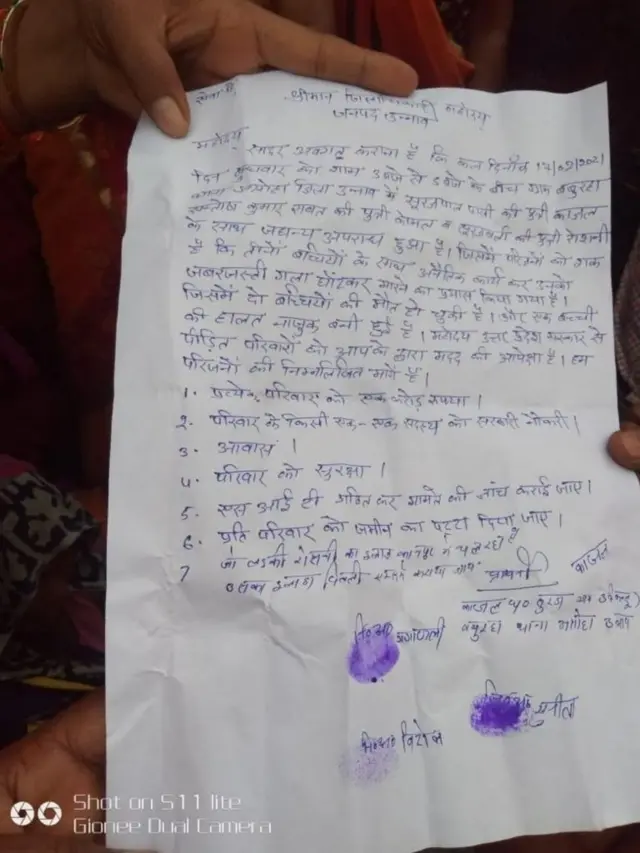 सेवा में,
श्रीमान जिलाधिकारी महोदय
जनपद उन्नाव
महोदय
सादर अवगत कराना है कि कल दिनांक 17/02/2021
दिन बुधवार को शाम 3 बजे से 6 बजे के बीच ग्राम बबुरहा
थाना असोहा जिला उन्नाव में सूरजपाल पासी की पुत्री काजल
संतोष कुमार रावत की पुत्री कोमल व सूरजबली की पुत्री रोशनी
के साथ जघन्य अपराध हुआ है। जिसमें
है कि तीनों बच्चियों के साथ अनैतिक कार्य कर उनको
जबरजस्ती गला घोंटकर मारने का प्रयास किया गया है।
जिसमें दो बच्चियों की मौत हो चुकी है। और एक बच्ची
की हालत नाजुक बनी हुई है। महोदय उत्तर प्रदेश सरकार से
पीडित परिवारों को आपके द्वारा मदद की अपेक्षा है। हम
परिजनों की निम्नलिखित मांगें हैं।
1. प्रत्येक परिवार को एक करोड़ रुपया।
2. परिवार के किसी एक-एक सदस्य को सरकारी नौकरी।
3. आवास।
4. परिवार को सुरक्षा।
5. एस आई टी गठित कर मामले की जांच कराई जाए।
6. प्रति परिवार को जमीन का पट्टा दिया जाए।
7 जो लडकी रोशनी का इलाज कानपुर में चल रहा है
उसका इलाज दिल्ली कराया जाए
प्रार्थनी
काजल
बबुरहा थाना असोहा उन्नाव
नि०अं०
नि०अं० सुनीता
नि०अं०
Shot on S11 lite
Gionee Dual Camera